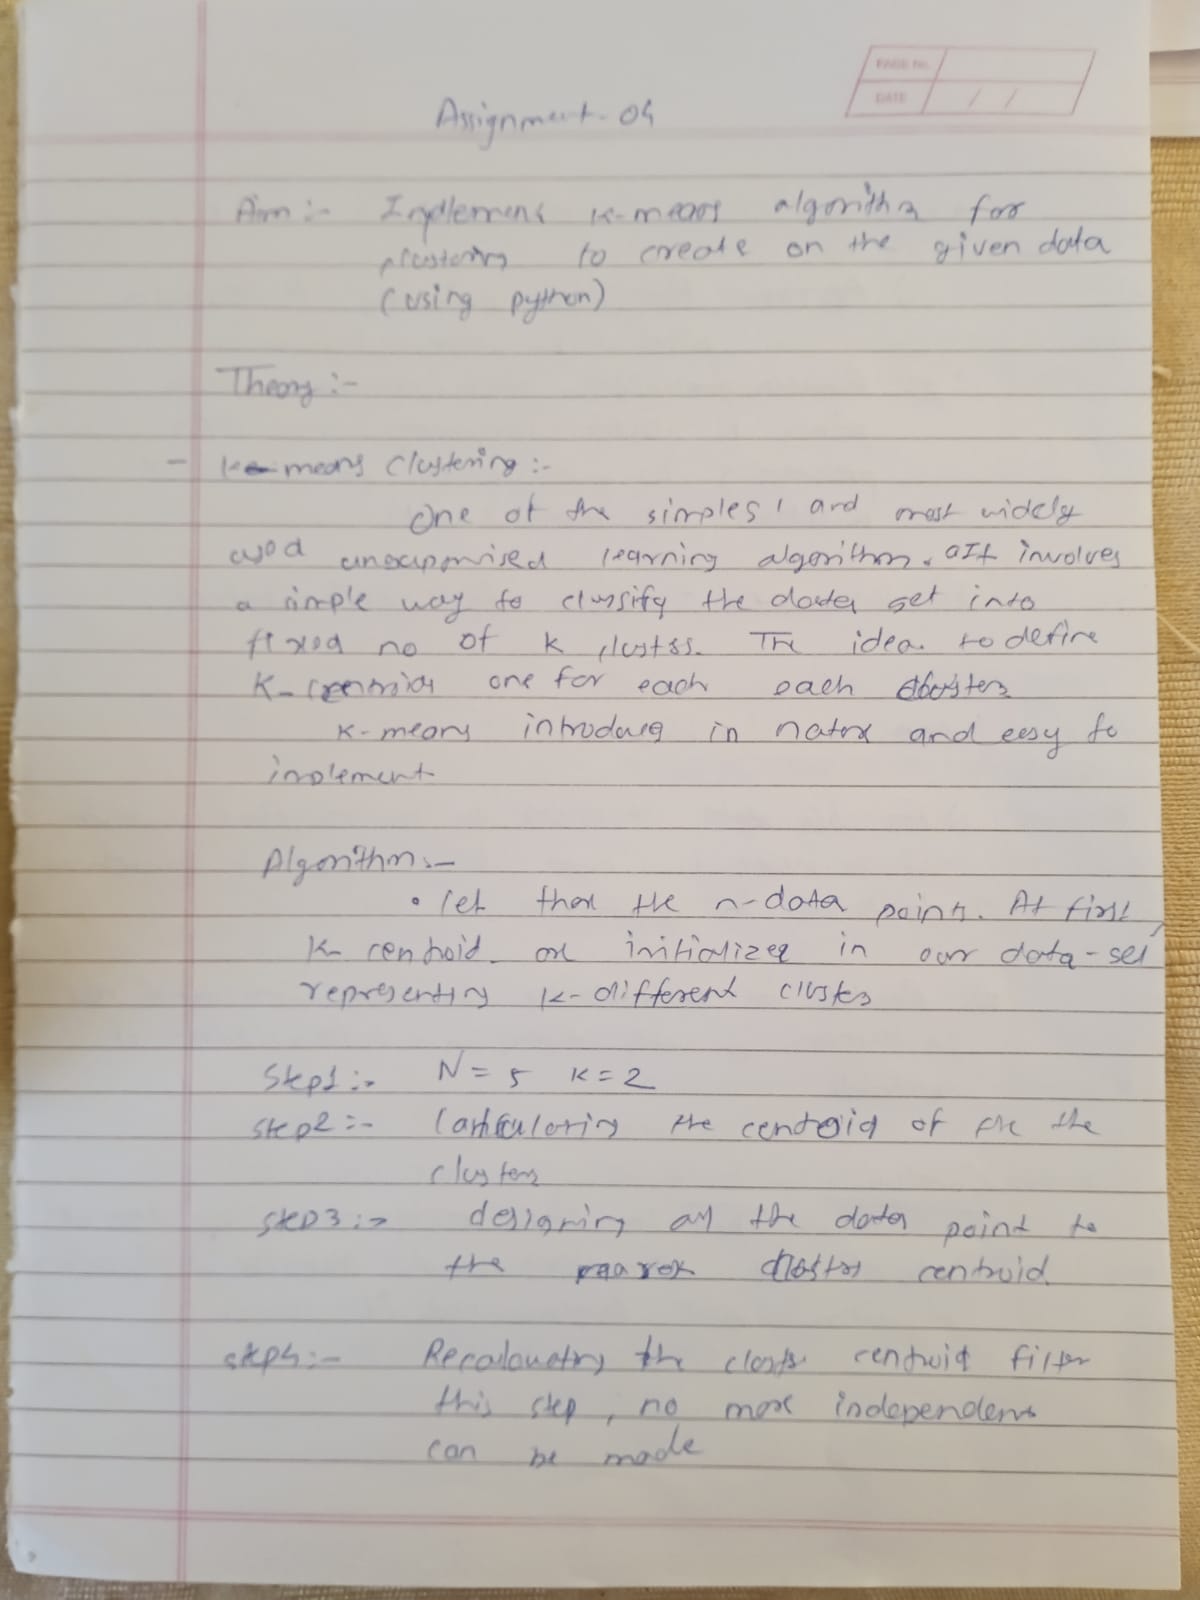 PAGE No.
DATE / /
Assignment-04
Aim :- Implement k-means algorithm for
clustering to create on the given data
(using python)
Theory :-
- k- means Clustering :-
One of the simplest and most widely
used unsupervised learning algorithm. It involves
a simple way to classify the data set into
fixed no of k clusters. The idea to define
K- centroids one for each each cluster
K-means introduce in nature and easy to
implement
Algorithm :-
• let the n-data points. At first,
K- centroid are initialized in our data-set
representing k-different clusters
Step1 :- N = 5 K = 2
Step2 :- Calculating the centroid of the the
clusters
Step3 :- designing all the data point to
the cluster centroid.
Step4 :- Recalculating the cluster centroid filter
this step, no more independent
can be made